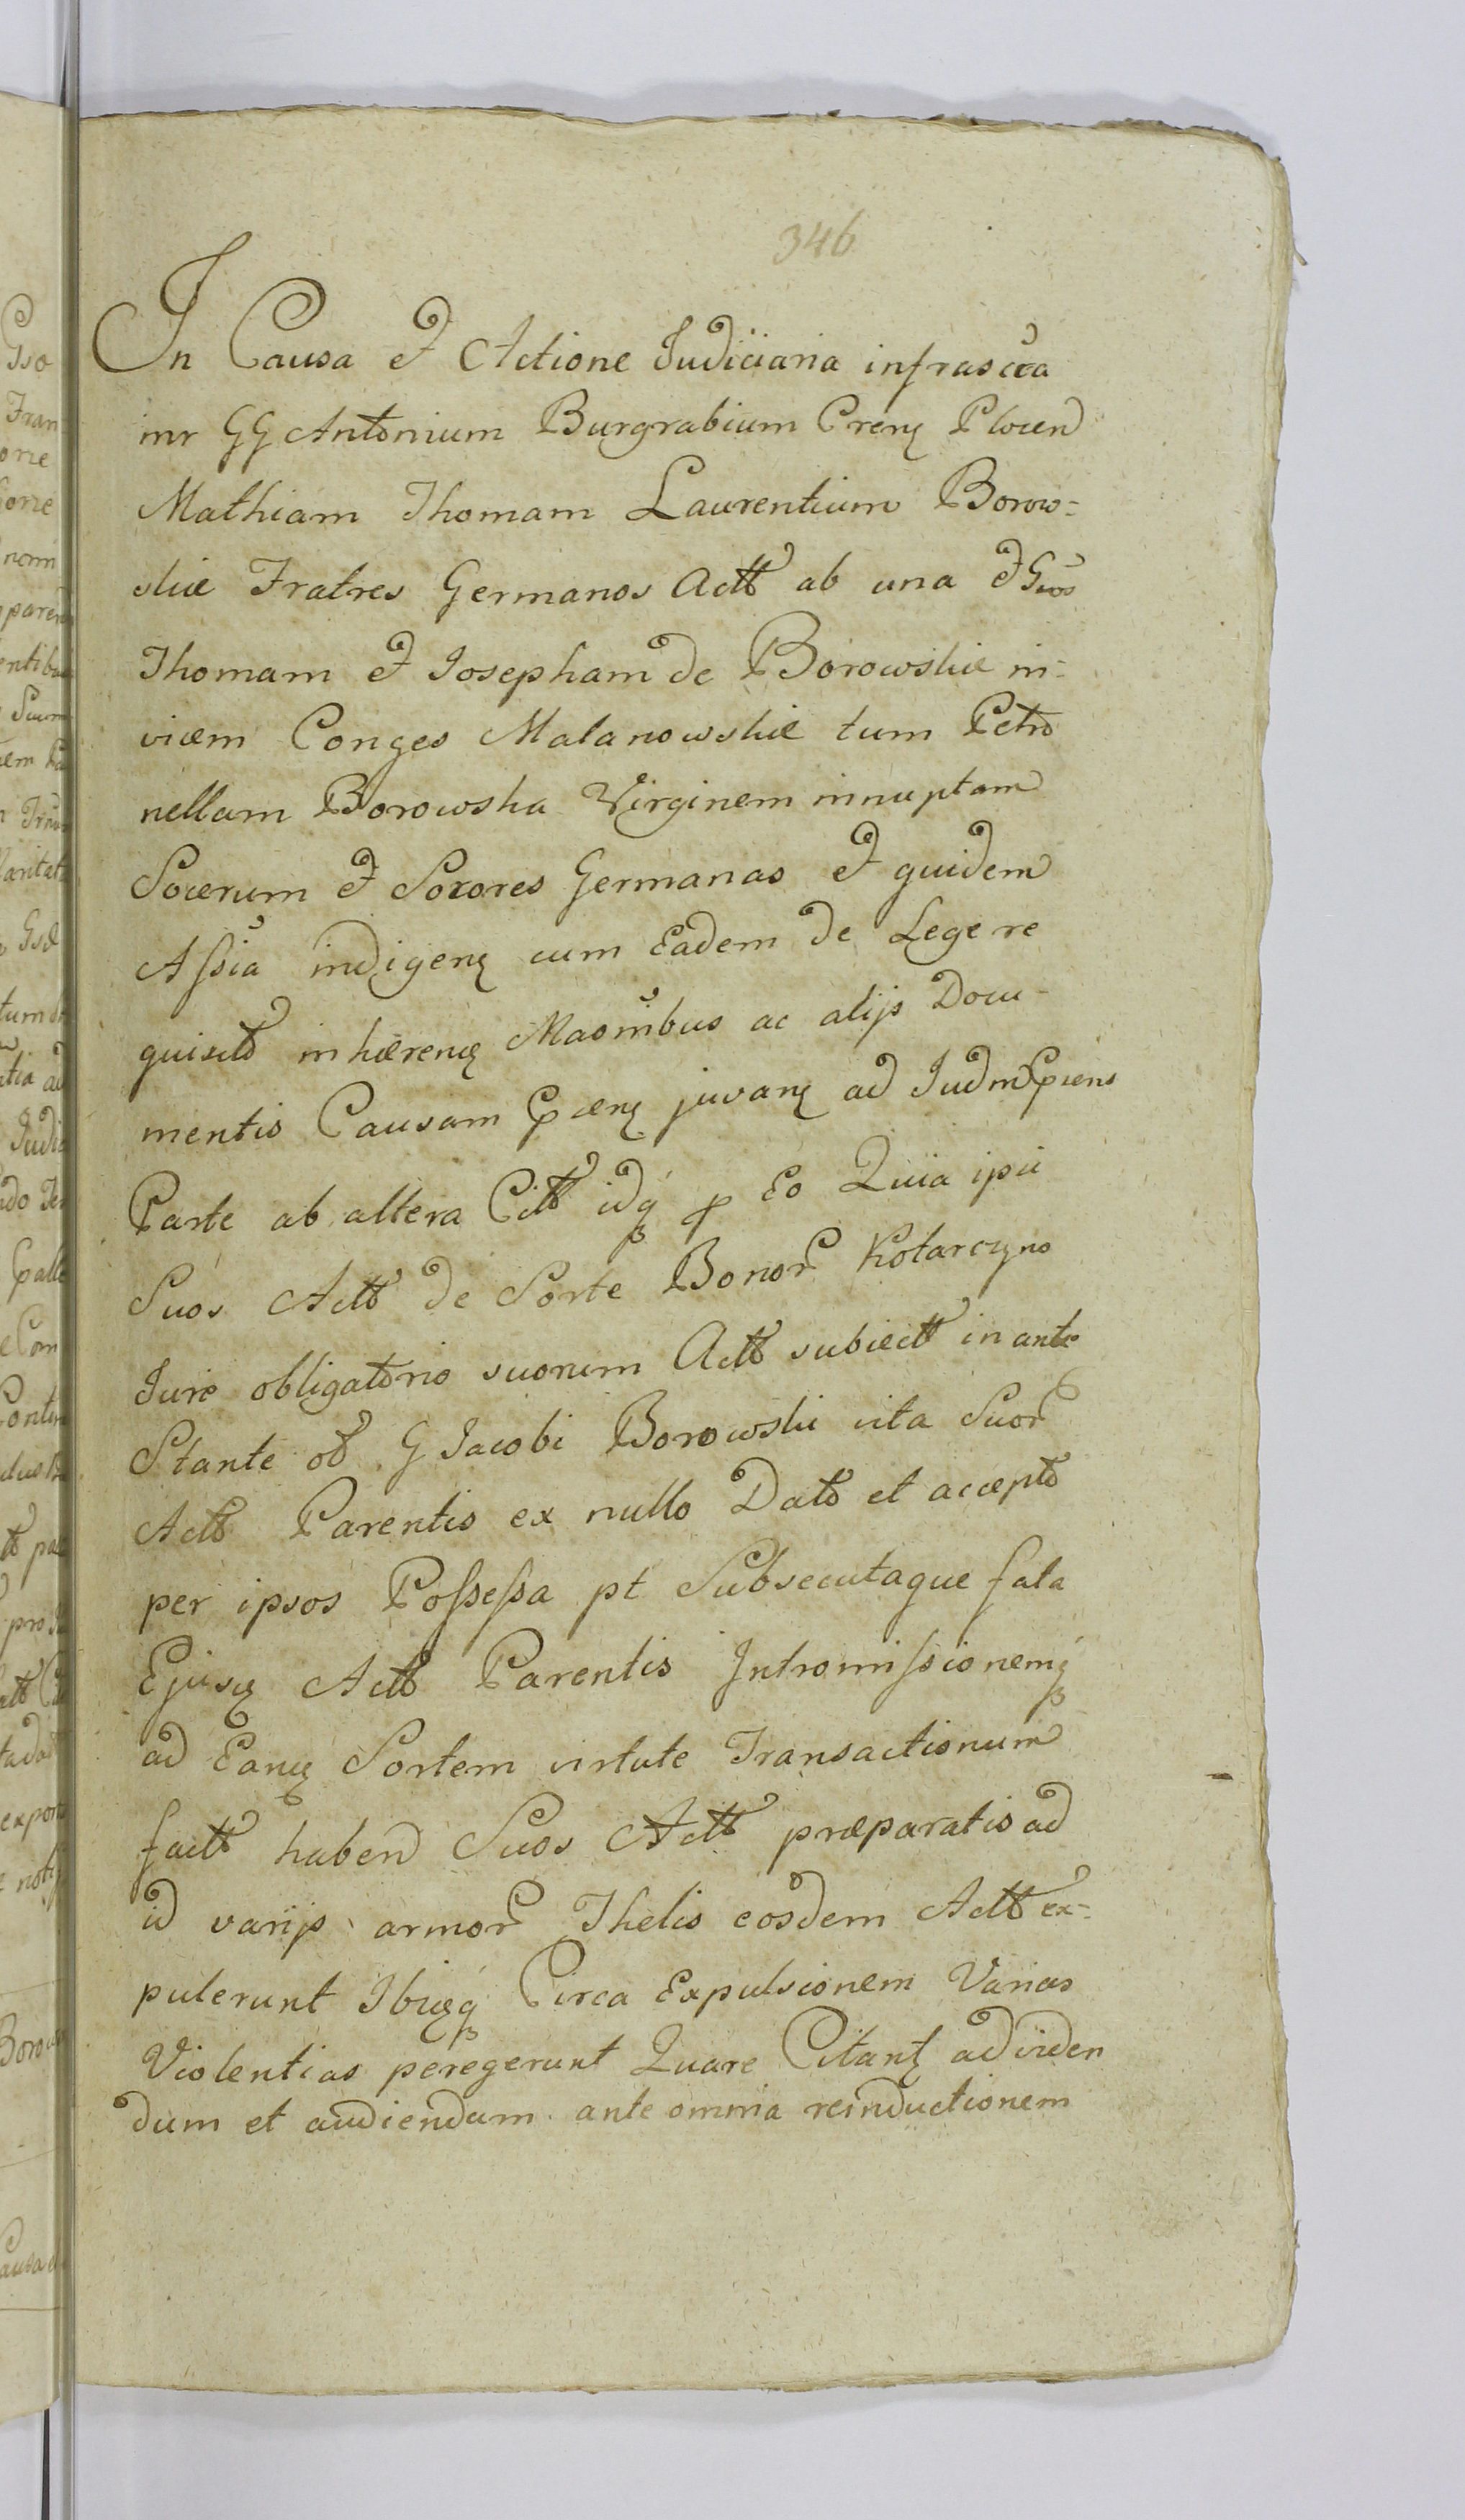 346
In Causa et Actione Judiciaria infrascra
inr GG Antonium Burgrabium Crenz Plocen
Mathiam Thomam Laurentium Borow-
skie Fratres Germanos Actt ab una et Gsos
Thomam et Josepham de Borowskie in-
vicem Conges Malanowskie tum Petro
nellam Borowska Virginem innuptam
Socerum et Sorores Germanas et quidem
Assia indigenz cum Eadem de Lege re
quisito inhærenz Maonibus ac alijs Docu-
mentis Causam pcenz juvanz ad Judm pciens
Parte ab altera Citt idq p Eo Quia ipsi
Suos Actt de Sorte Bonor Kotarczyno
Jure obligatorio suorum Actt subiectt in ante
Stante ob G Jacobi Borowski vita Suor
Actt Parentis ex nullo Dato et accepto
per ipsos Possessa pt Subsecutaque fata
Ejusq Actt Parentis Intromissionemq
ad Eanq Sortem virtute Transactionum
factt haben Suos Actt præparatis ad
id varijs armor Thelis eosdem Actt ex-
pulerunt Ibiqq Circa Expulsionem Varias
Violentias peregerunt Quare Citantz ad viden
dum et audiendum ante omnia reinductionem